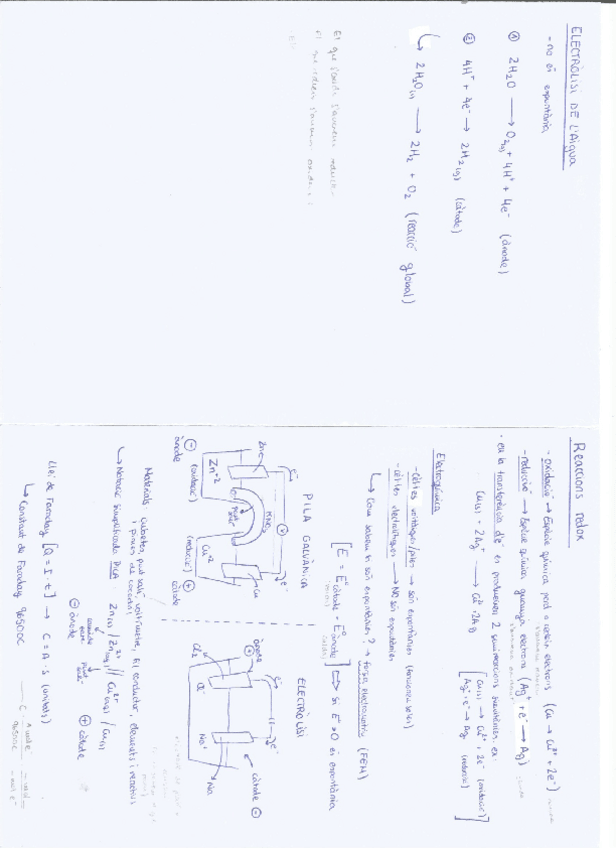 ELECTRÒLISI DE L'AIGUA
- no és espontània
① 2H₂O ⟶ O₂(g) + 4H⁺ + 4e⁻ (ànode)
② 4H⁺ + 4e⁻ ⟶ 2H₂(g) (càtode)
↳ 2H₂O(l) ⟶ 2H₂ + O₂ (reacció global)
Reaccions redox
- oxidació → Espècie química perd o cedeix electrons (Cu → Cu²⁺ + 2e⁻)
- reducció → Espècie química guanya electrons (Ag⁺ + e⁻ ⟶ Ag)
· en la transferència d'e⁻ es produeixen 2 semireaccions simultànies. ex:
Cu(s) + 2Ag⁺ ⟶ Cu²⁺ + 2Ag
[Cu(s) → Cu²⁺ + 2e⁻ (oxidació)
Ag⁺ + e⁻ → Ag (reducció)]
Electroquímica
- Cèl·les voltaiques/piles → són espontànies (funcionen soles)
- cèl·les electrolítiques ⟶ NO són espontànies
↳ Com sabem si són espontànies? → força electromotriu (FEM)
[E = E°càtode - E°ànode] ⟹ Si E° > 0 és espontània
PILA GALVÀNICA
e⁻
V
e⁻
Zn
KNO₃
Cu
pont salí
Zn⁺²
Cu⁺²
⊖ (oxidació)
ànode
(reducció) ⊕
càtode
ELECTRÒLISI
e⁻
e⁻
ànode ⊕
càtode ⊖
Cl₂
Cl⁻
Na⁺
Na
Materials: cubetes, pont salí, voltímetre, fil conductor, elements i reactius
i pinces de cocodril
↳ Notació simplificada PILA: Zn(s) / Zn²⁺(aq) // Cu²⁺(aq) / Cu(s)
⊖ ànode
pont salí
⊕ càtode
Llei de Faraday [Q = I · t] → C = A · s (unitats)
↳ Constant de Faraday 96500C